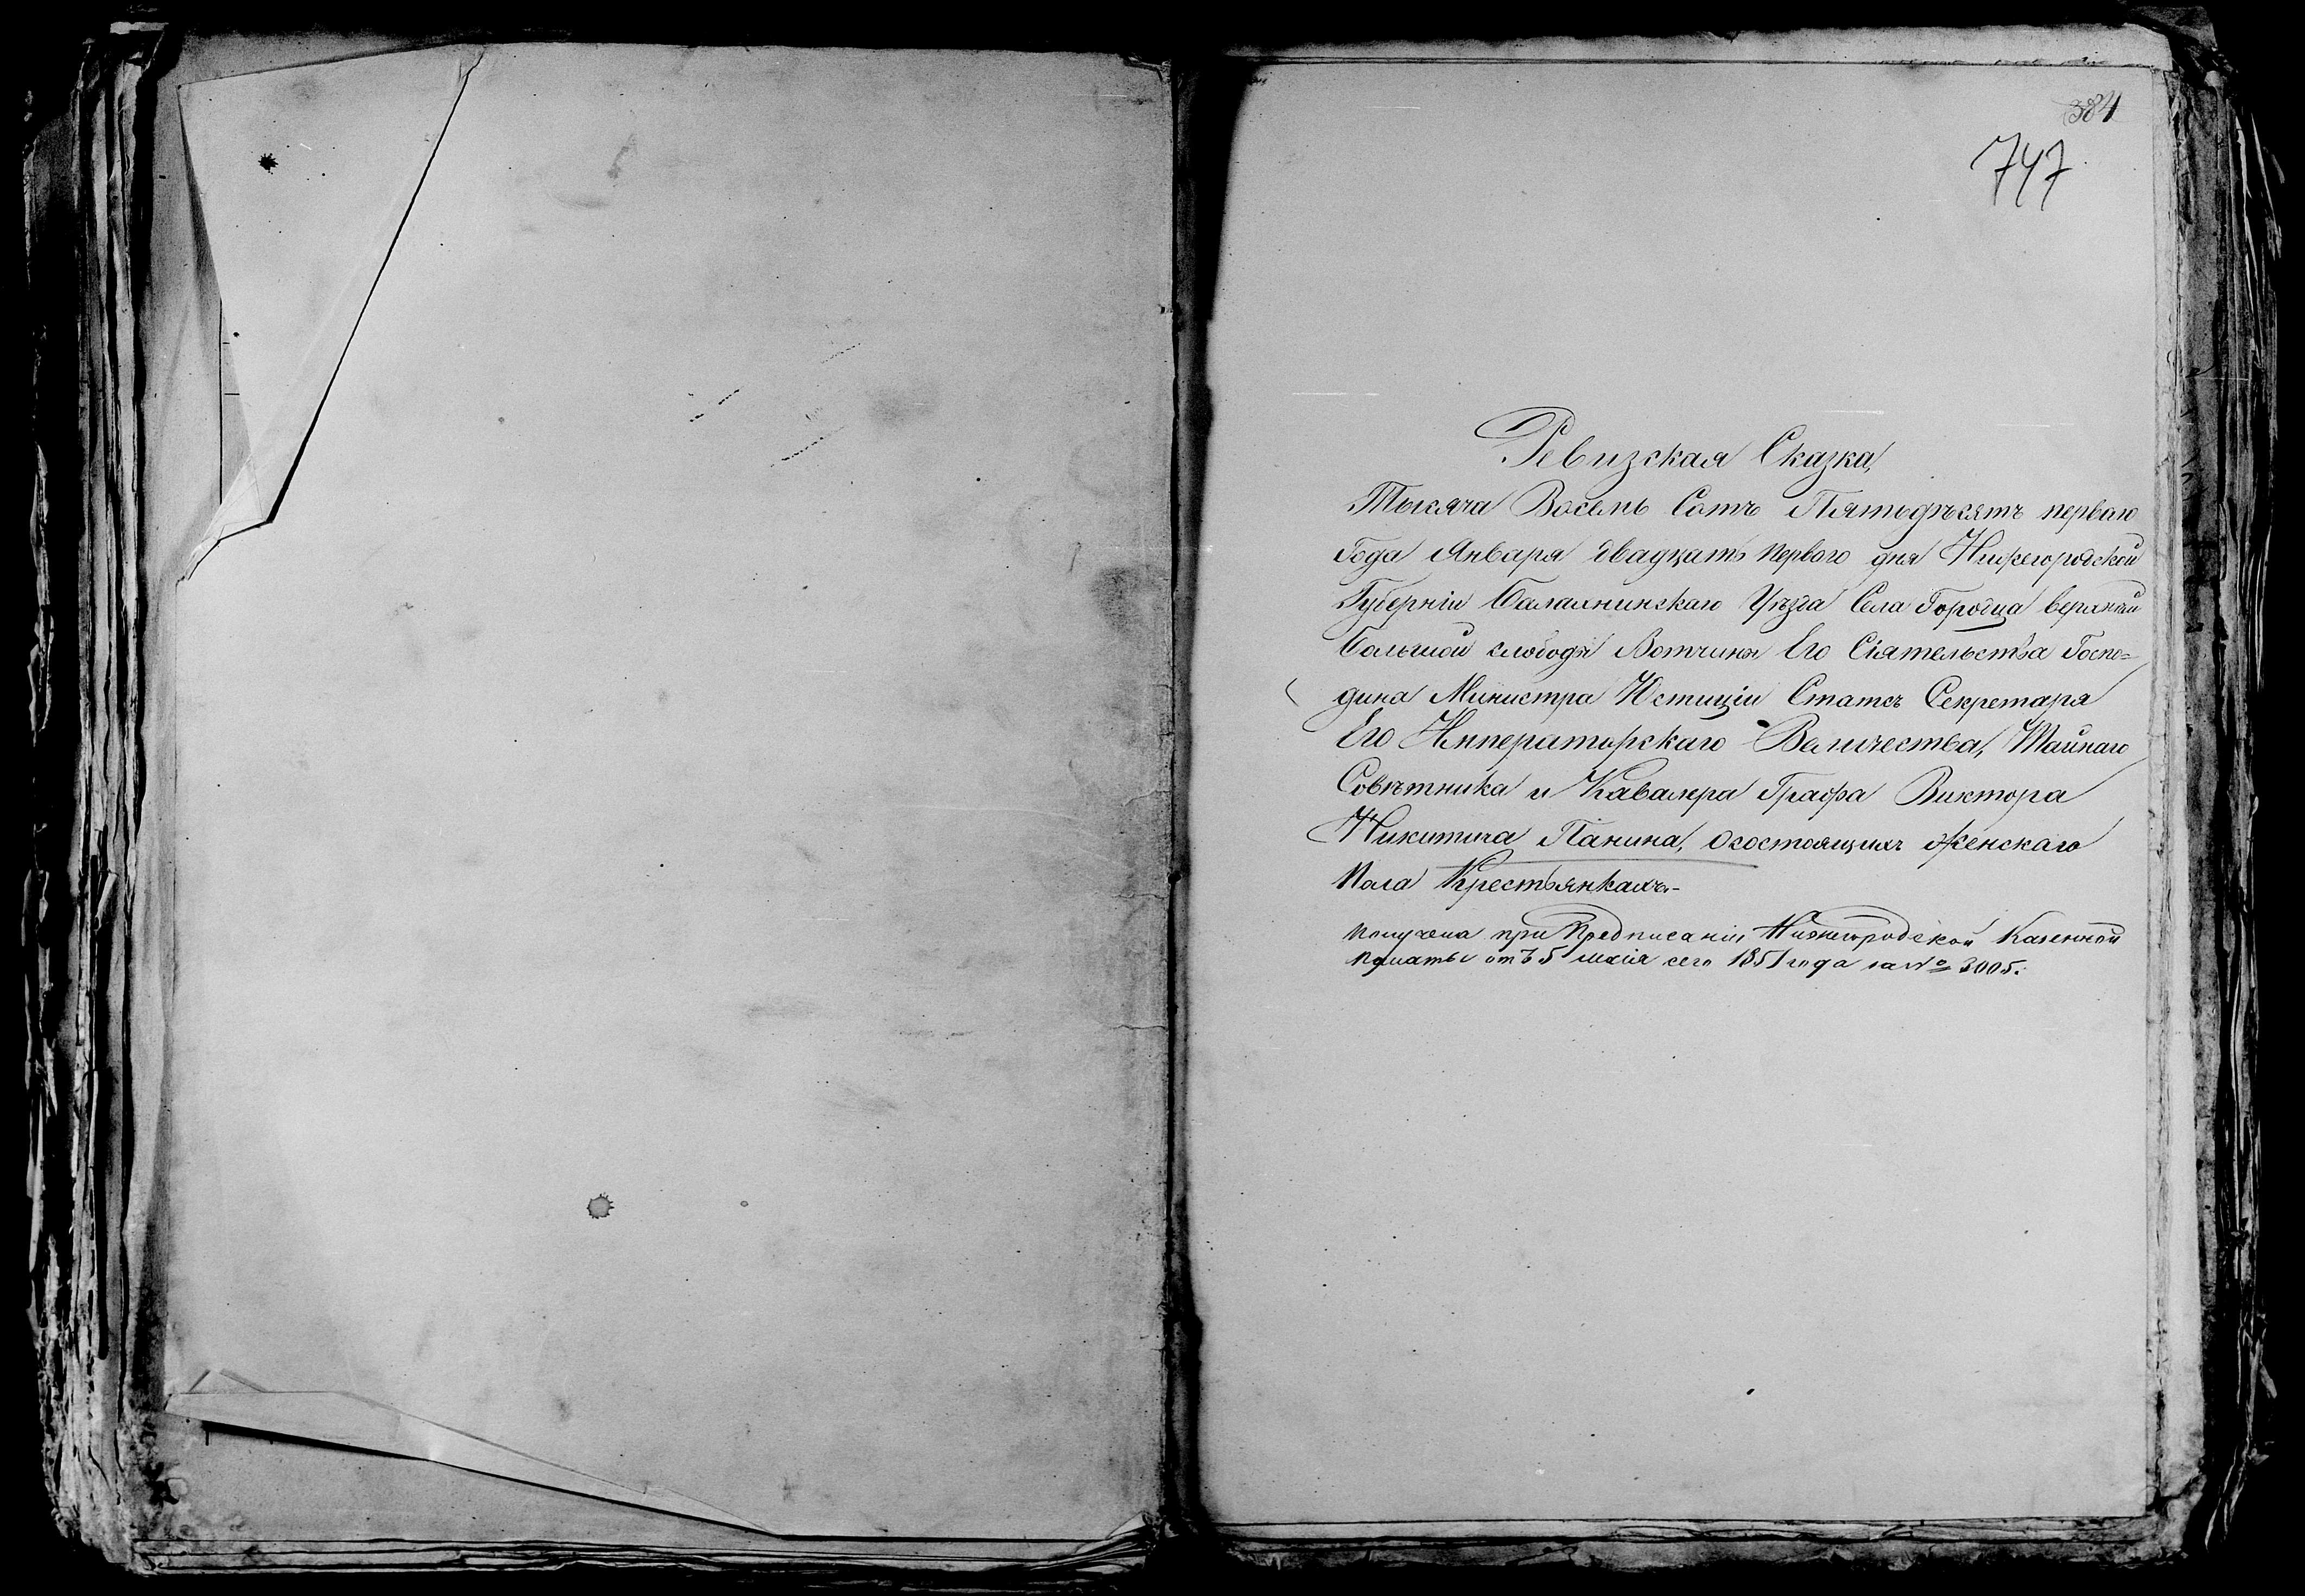 384
747
Ревизская Сказка,
Тысяча Восемь Сотъ Пятьдѣсятъ перваго
Года Января двадцать перваго дня Нижегородской
Губерніи Балахнинскаго Уѣзда Села Городца верхней
Большой слободы Вотчины Его Сіятельства Госпо=
дина Министра Юстиціи Статсъ Секретаря
Его Императорскаго Величества, Тайнаго
Совѣтника и Кавалера Графа Виктора
Никитича Панина, о состоящихъ женскаго
Пола Крестьянкахъ.-
Получена при Предписаніи Нижегородской Казенной
Палаты отъ 5 маія сего 1851 года за № 3005.